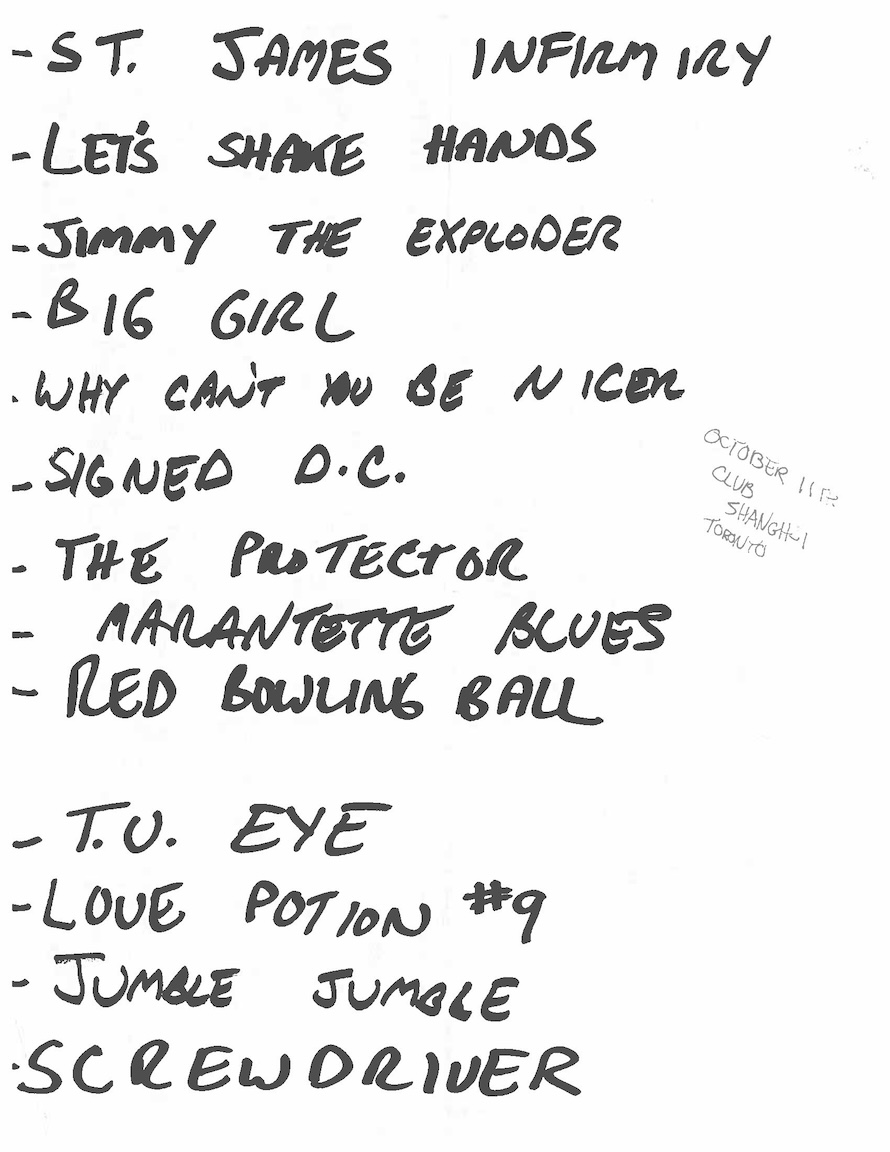 - ST. JAMES INFIRMIRY
- LET'S SHAKE HANDS
- JIMMY THE EXPLODER
- BIG GIRL
- WHY CAN'T YOU BE NICER
- SIGNED D.C.
- THE PROTECTOR
- MARANTETTE BLUES
- RED BOWLING BALL
- T.V. EYE
- LOVE POTION #9
- JUMBLE JUMBLE
- SCREWDRIVER
OCTOBER 11TH
CLUB
SHANGHAI
TORONTO